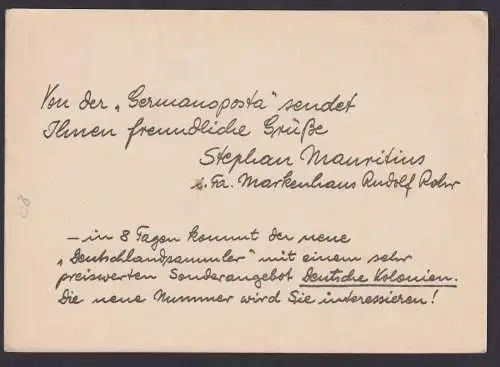 Von der „Germanoposta“ sendet
Ihnen freundliche Grüße
Stephan Mauritius
i. Fa. Markenhaus Rudolf Rohr
– in 8 Tagen kommt der neue
„Deutschlandsammler“ mit einem sehr
preiswerten Sonderangebot Deutsche Kolonien.
Die neue Nummer wird Sie interessieren!